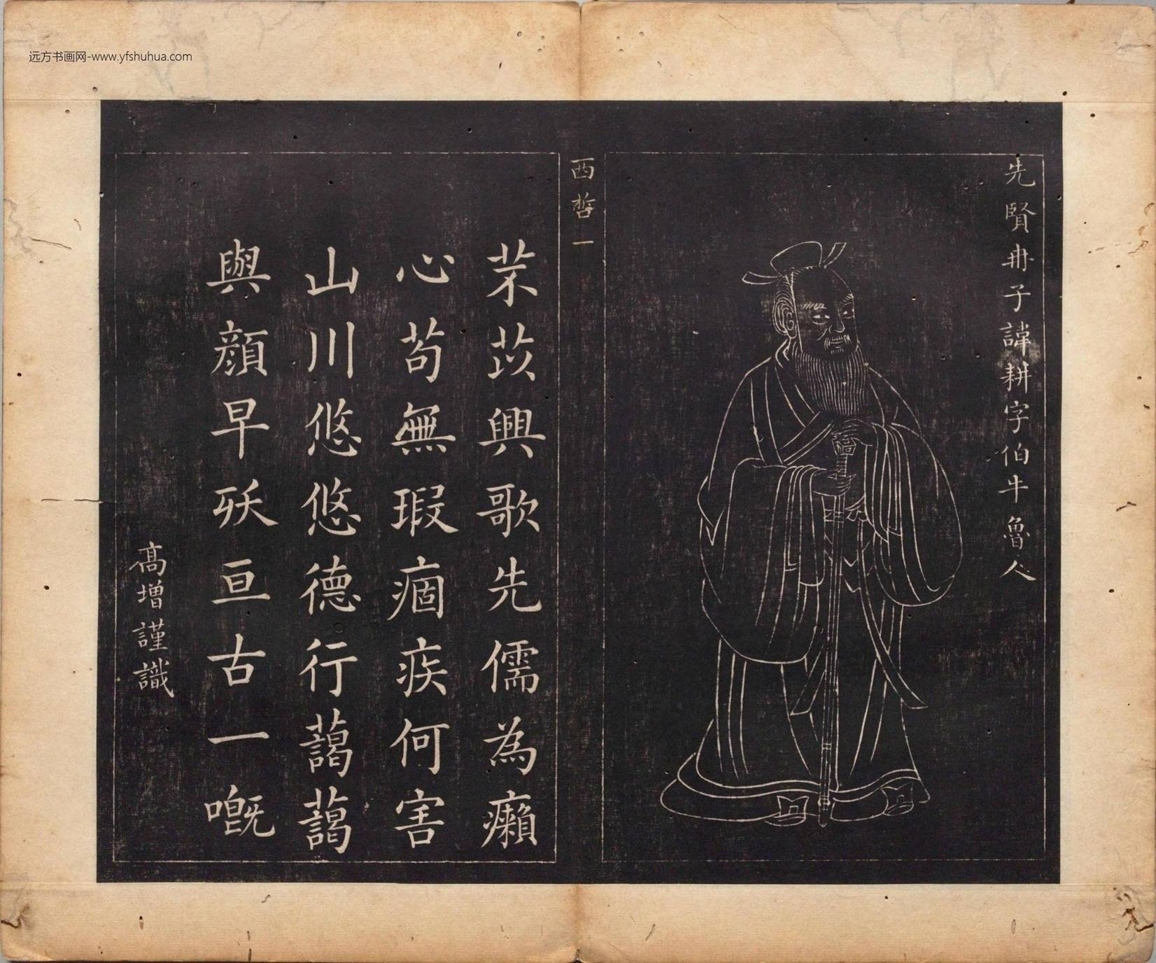 远方书画网-www.yfshuhua.com
先賢冉子諱耕字伯牛魯人
西哲一
芣苡興歌先儒為癩
心苟無瑕痼疾何害
山川悠悠德行藹藹
與顔早殀亘古一嘅
高增謹識